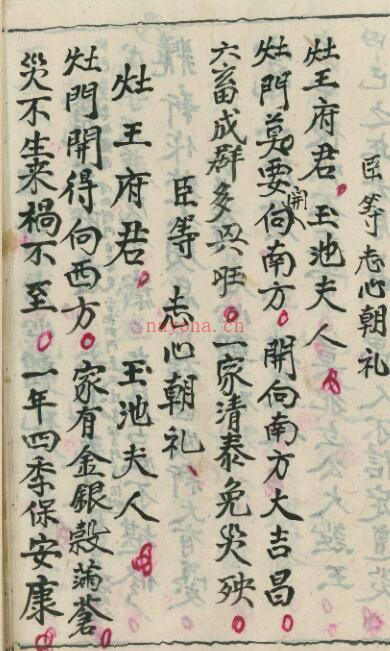 臣等志心朝礼
灶王府君玉池夫人
灶門莫要開向南方開向南方大吉昌
六畜成群多兴旺一家清泰免災殃
臣等志心朝礼
灶王府君玉池夫人
灶門開得向西方家有金銀穀滿蒼
災不生来禍不至一年四季保安康
nayona.cn